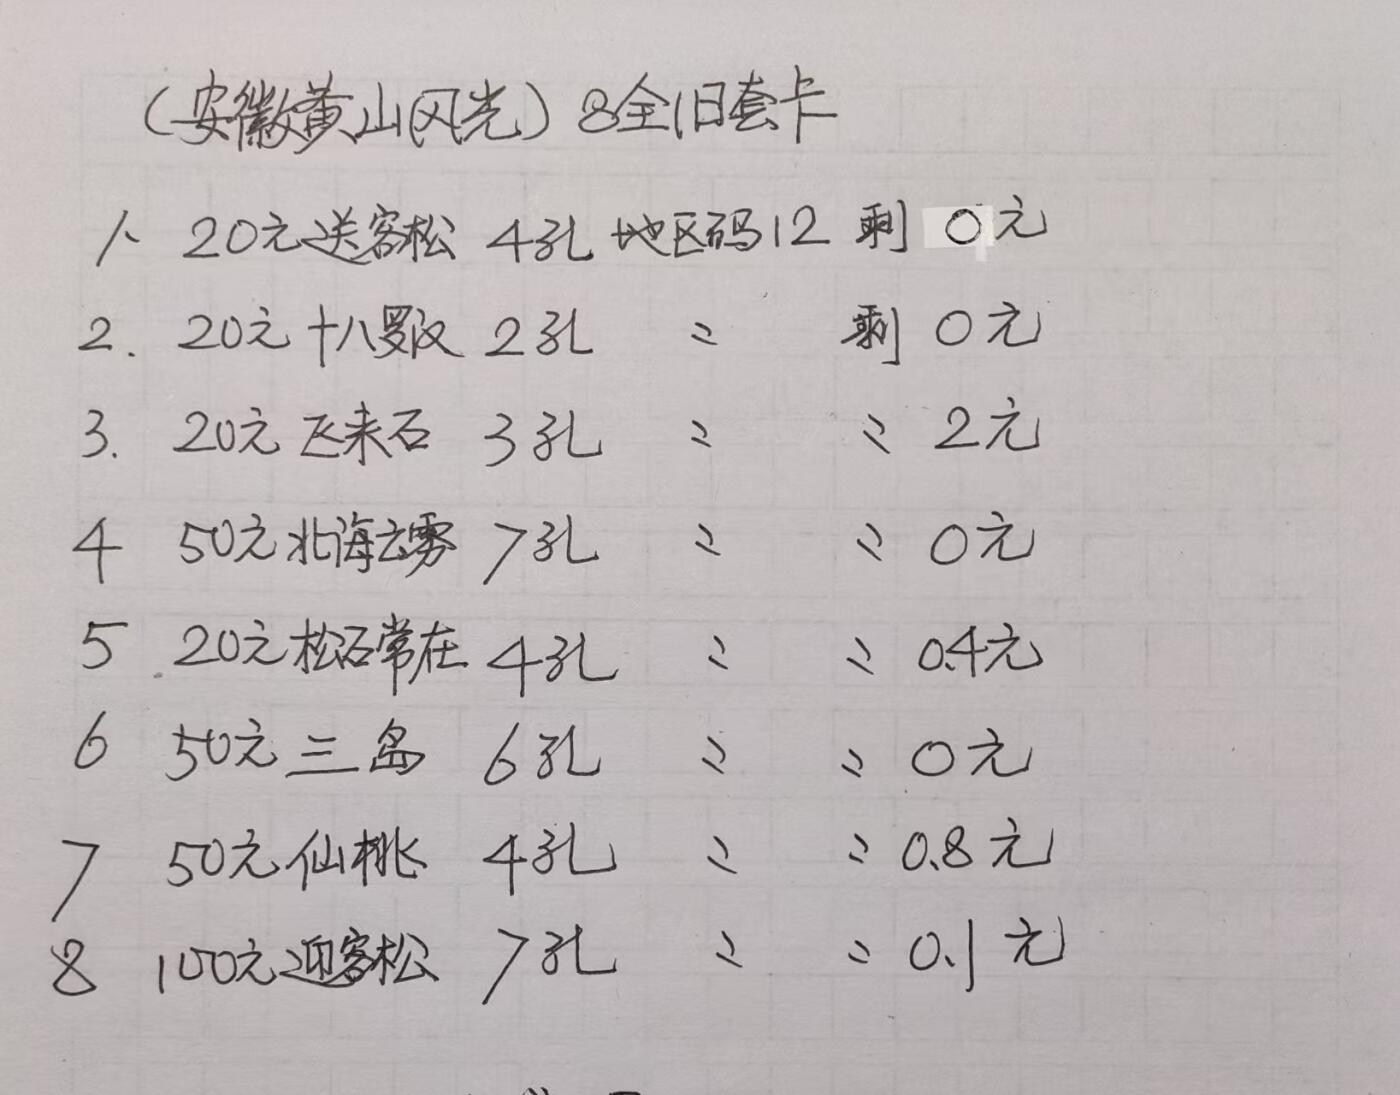 (安徽黄山风光)8全旧套卡
1、 20元送客松 4孔 地区码12 剩 0元
2. 20元十八罗汉 2孔 〃 剩 0元
3. 20元飞来石 3孔 〃 〃 2元
4 50元北海云雾 7孔 〃 〃 0元
5 20元松石常在 4孔 〃 〃 0.4元
6 50元三岛 6孔 〃 〃 0元
7 50元仙桃 4孔 〃 〃 0.8元
8 100元迎客松 7孔 〃 〃 0.1元